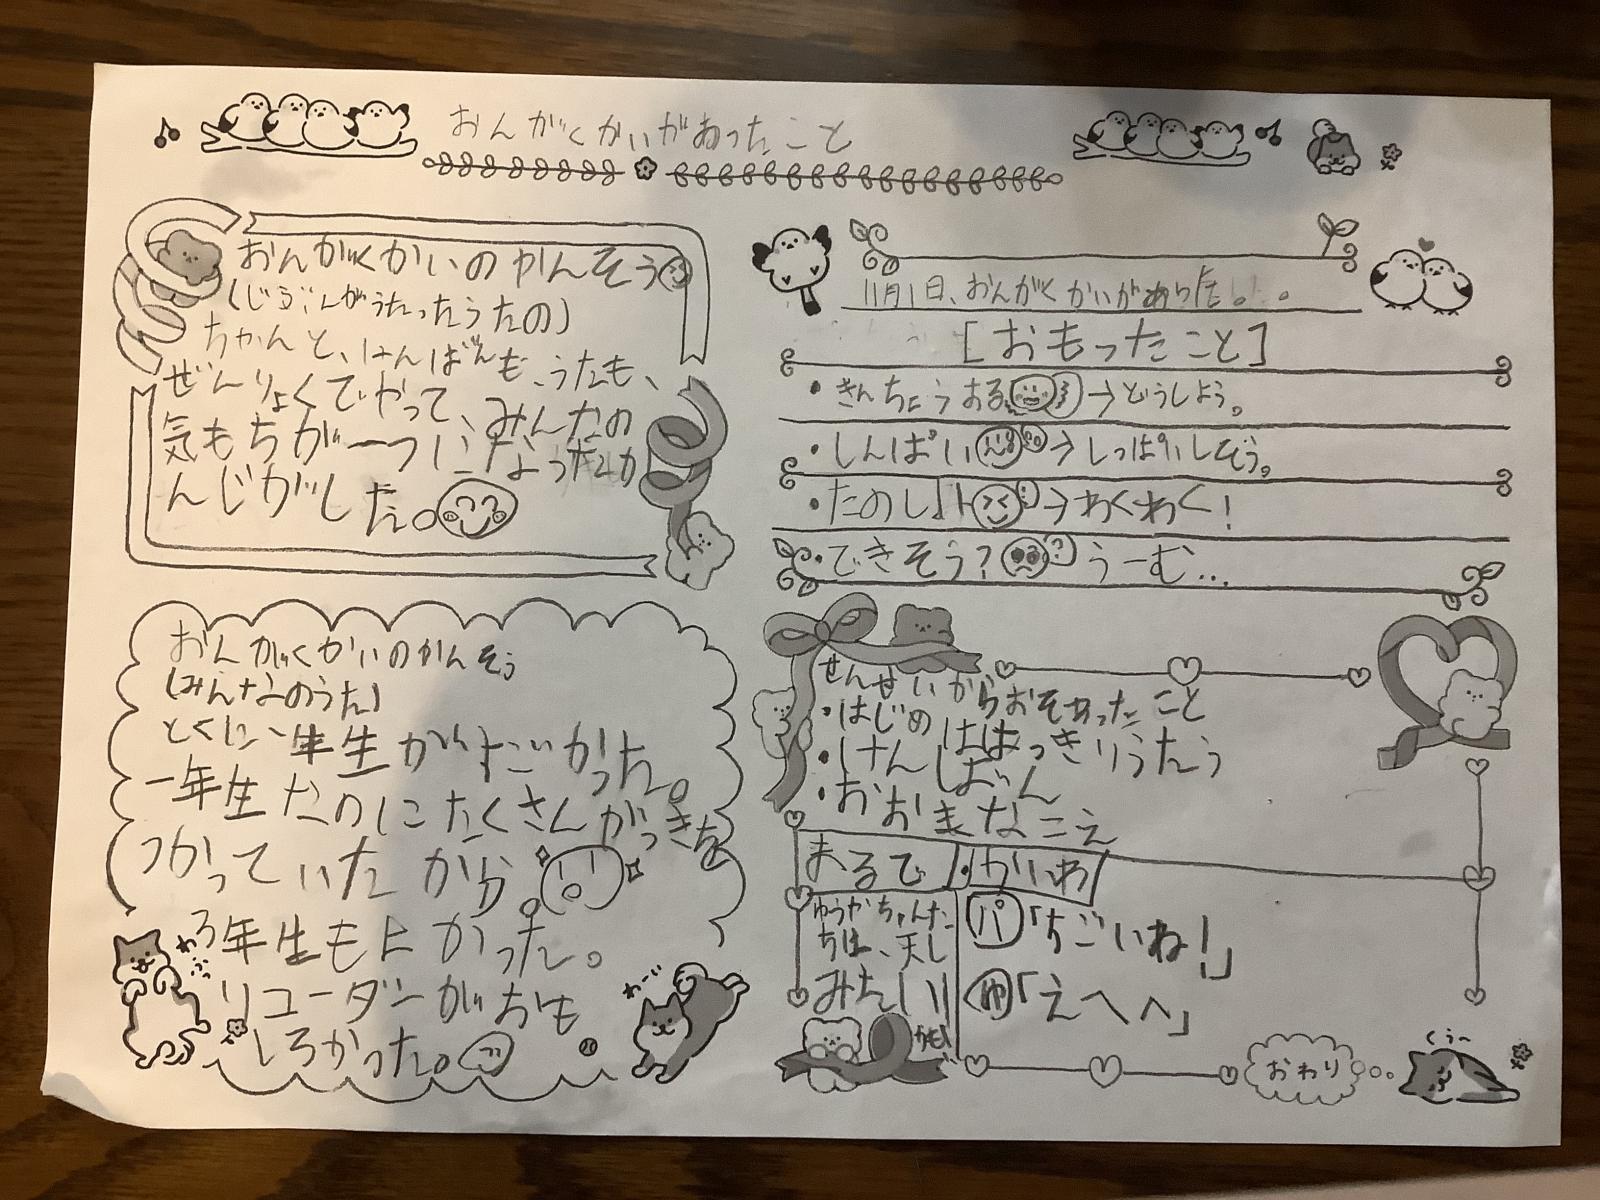 おんがくかいがあったこと
おんがくかいのかんそう
(じぶんがうたったうたの)
ちゃんと、けんばんも、うたも、
ぜんりょくでやって、みんなの
気もちが一つになったか
んじがした。
11月1日、おんがくかいがありた。
[おもったこと]
・きんちょうある→どうしよう。
・しんぱい→しっぱいしそう。
・たのしみ→わくわく!
・できそう?うーむ...
おんがくかいのかんそう
(みんなのうた)
とくに、一年生がすごかった。
一年生なのにたくさんがっきを
つかっていたから。
3年生もよかった。
リコーダーがおも
しろかった。
わふっ
わーい
せんせいからおそわったこと
・はじめははっきりうたう
・けんしばん
・おおきなこえ
まるで
・かいわ
ゆうかちゃんた
ちは、天し
みたい!
かも!
パ「すごいね!」
ゆ「えへへ」
おわり
くぅ〜